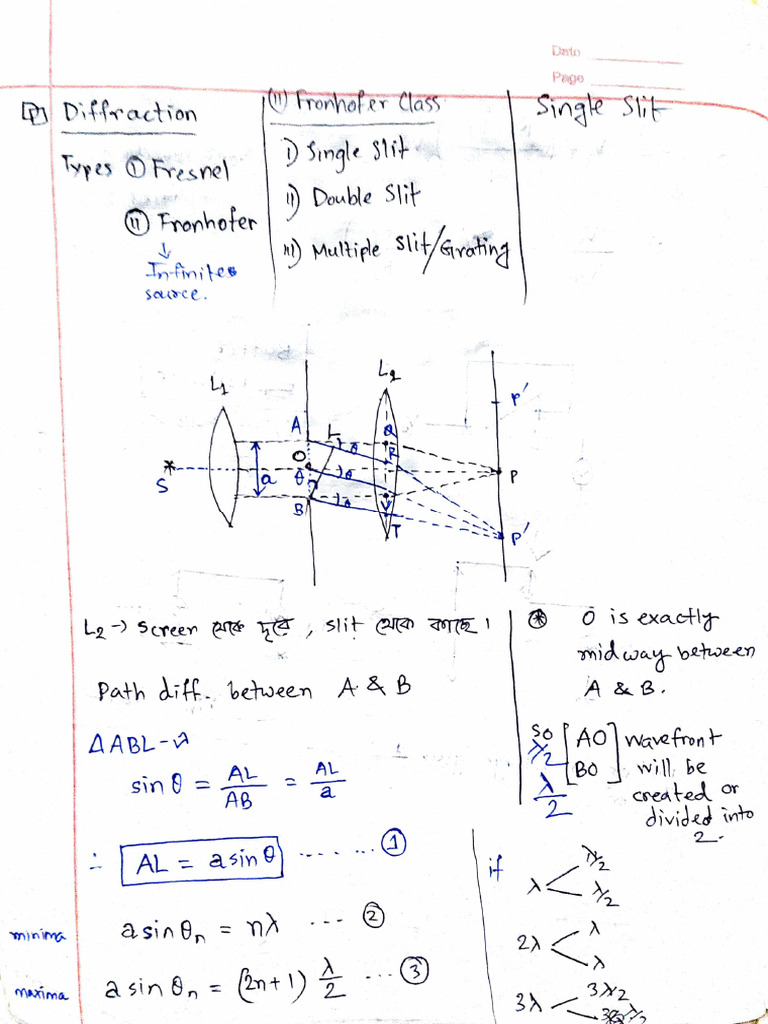 Date
Page
Diffraction
Types ① Fresnel
② Fronhofer
↓
Infinite
source.
(II) Fronhofer Class
i) Single slit
ii) Double Slit
iii) Multiple Slit/Grating
Single Slit
L₁
L₂
A
L
Q
P'
θ
R
O
S
a
θ
θ
P
B
θ
T
P'
L₂ → Screen থেকে দূরে, slit থেকে কাছে।
Path diff. between A & B
ΔABL-এ
sinθ = AL/AB = AL/a
∴ AL = a sinθ ...... ①
minima a sinθₙ = nλ ... ②
maxima a sinθₙ = (2n+1) λ/2 ... ③
⊛ O is exactly
midway between
A & B.
so
λ/2
λ/2
[AO
BO]
wavefront
will be
created or
divided into
2.
if
λ < λ/2
λ/2
2λ < λ
λ
3λ < 3λ/2